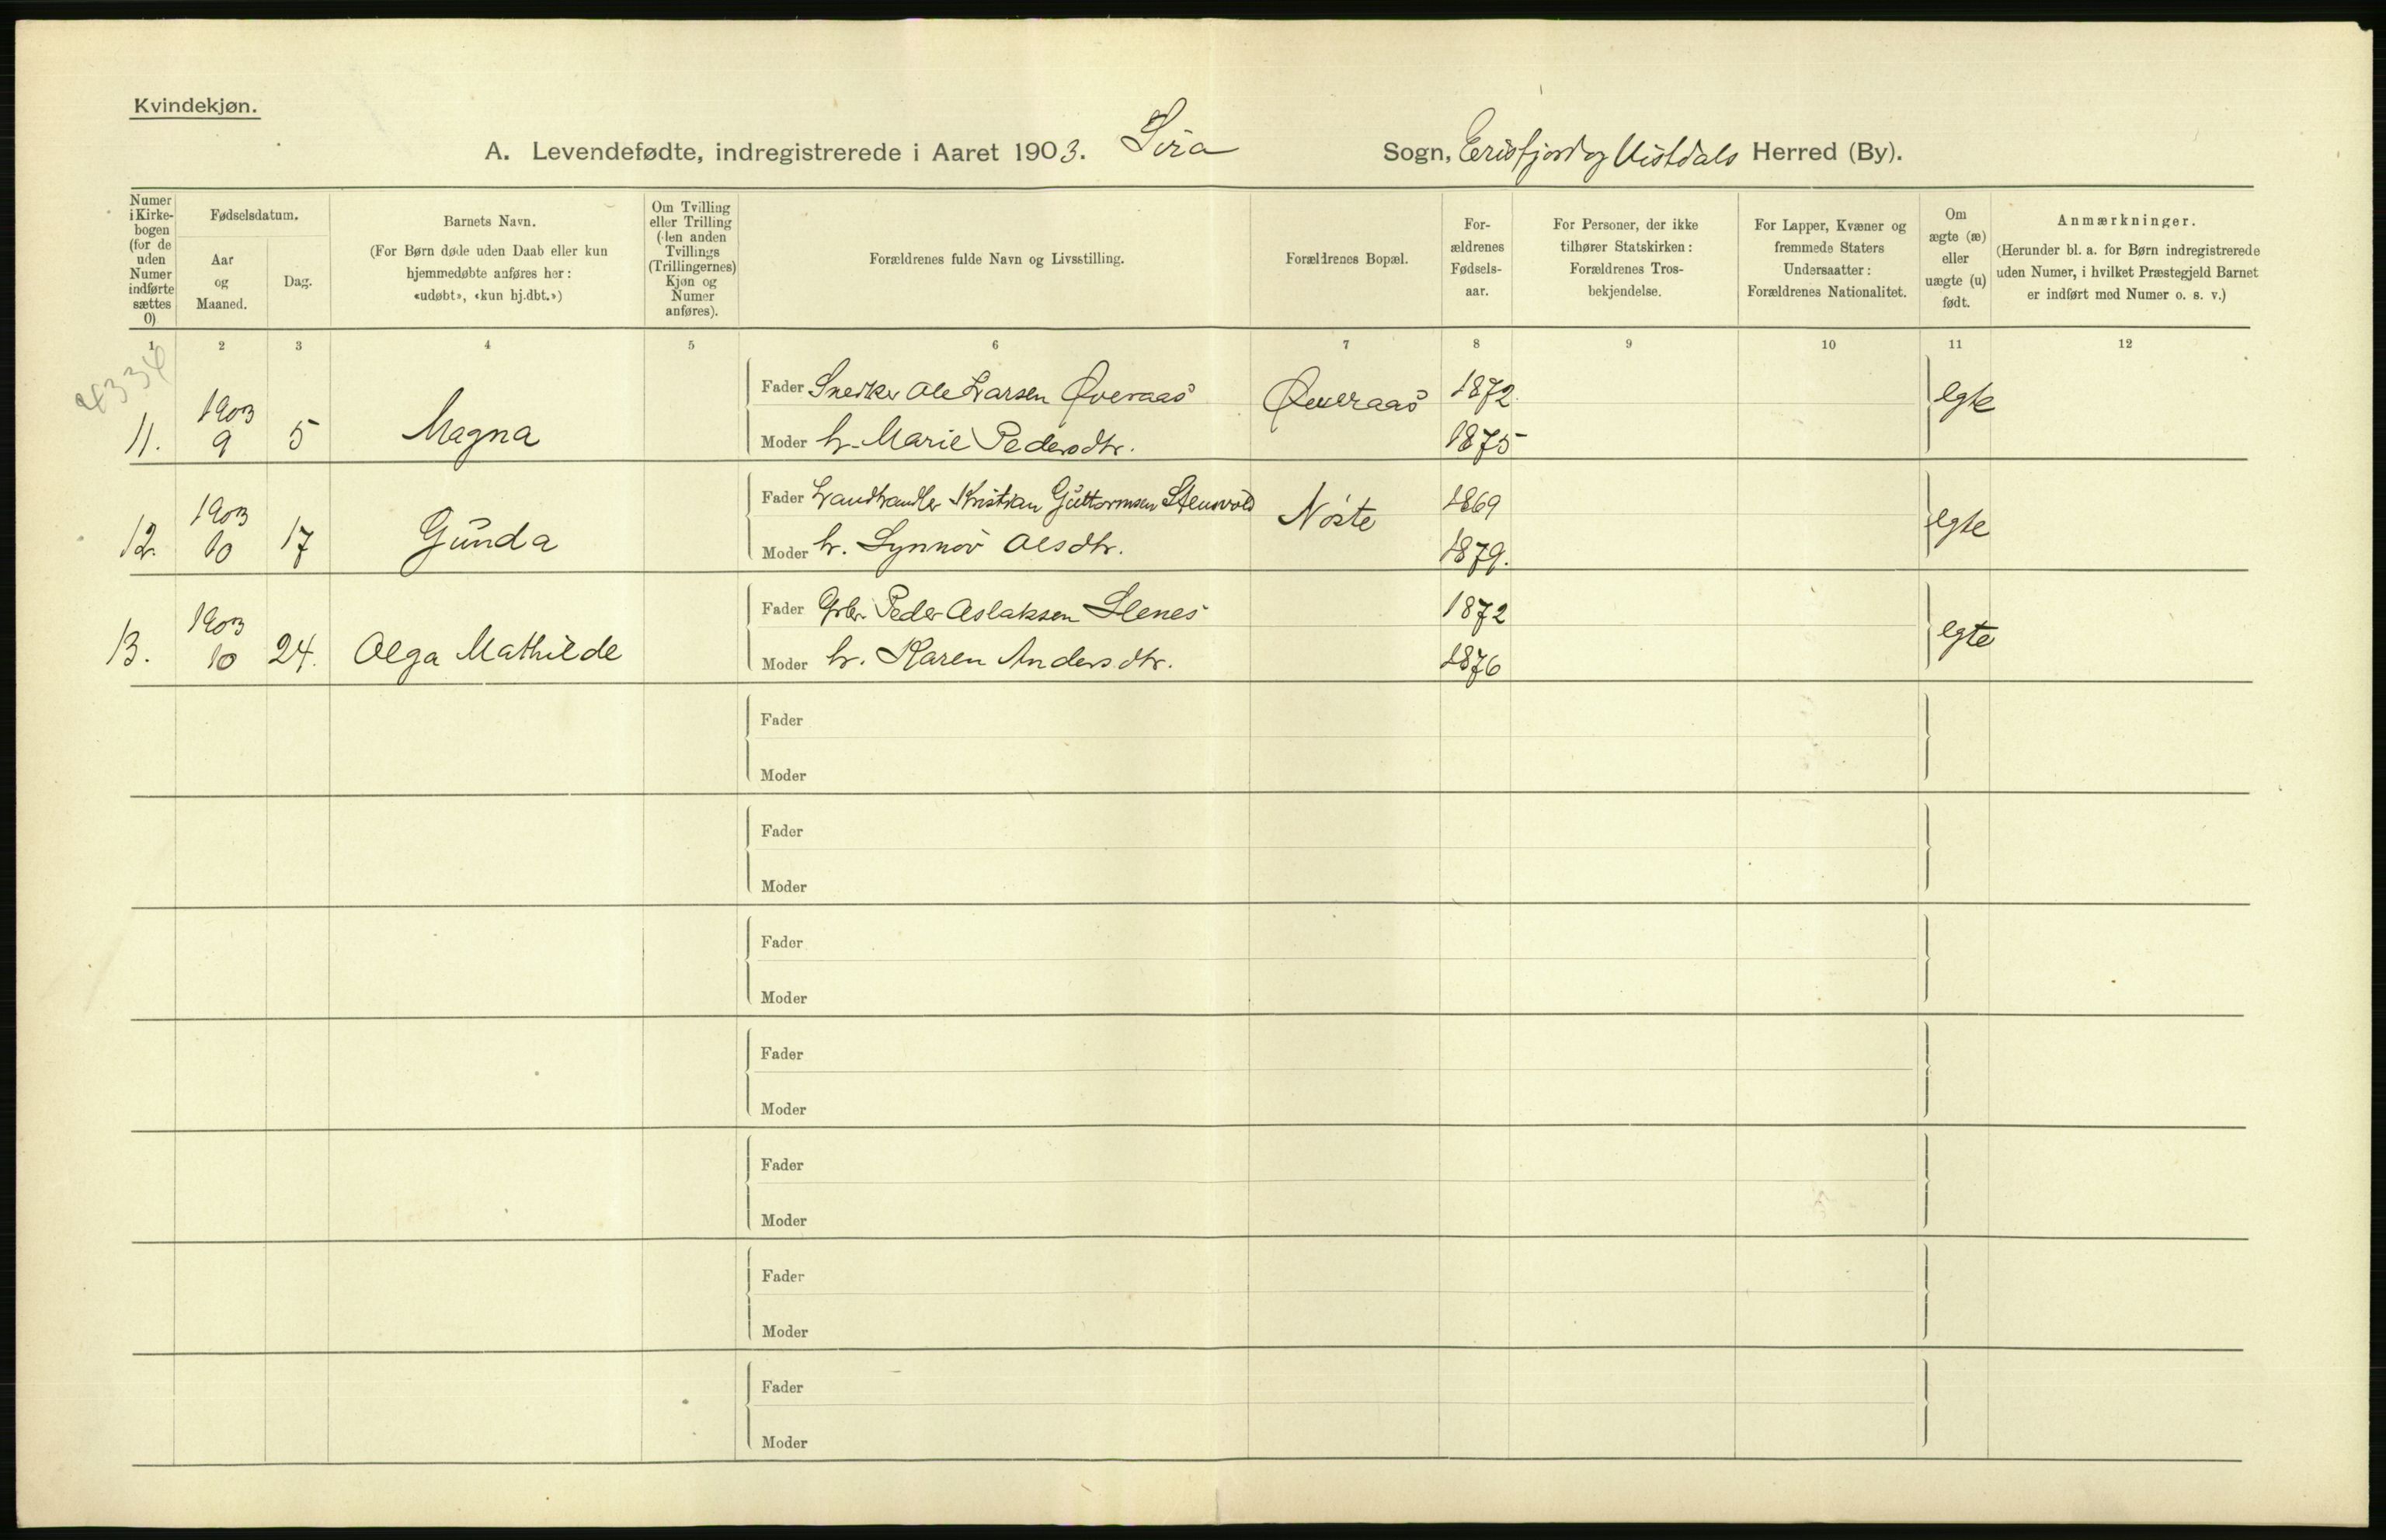 Kvindekjøn.
A. Levendefødte, indregistrerede i Aaret 1903. Sira Sogn, Erisfjord og Vistdals Herred (By).
Numer i Kirkebogen (for de uden Numer indførte sættes 0)
Fødselsdatum.
Aar og Maaned.
Dag.
Barnets Navn.
(For Børn døde uden Daab eller kun hjemmedøbte anføres her: «udøbt», «kun hj.dbt.»)
Om Tvilling eller Trilling (den anden Tvillings (Trillingernes) Kjøn og Numer anføres).
Forældrenes fulde Navn og Livsstilling.
Forældrenes Bopæl.
Forældrenes Fødselsaar.
For Personer, der ikke tilhører Statskirken: Forældrenes Trosbekjendelse.
For Lapper, Kvæner og fremmede Staters Undersaatter: Forældrenes Nationalitet.
Om ægte (æ) eller uægte (u) født.
Anmærkninger.
(Herunder bl. a. for Børn indregistrerede uden Numer, i hvilket Præstegjeld Barnet er indført med Numer o. s. v.)
1 2 3 4 5 6 7 8 9 10 11 12
4334
11. 1903 9 5 Magna
Fader Snedker Ole Larsen Øveraas Øveraas 1872. egte
Moder h. Marie Pedersdtr. 1875
12. 1903 10 17 Gunda
Fader Landhandler Kristian Guttormsen Stensvold Nöste 1869 egte
Moder h. Synnöv Olsdtr. 1879.
13. 1903 10 24. Olga Mathilde
Fader Grbr. Peder Aslaksen Slenes 1872 egte
Moder h. Karen Andersdtr. 1876
Fader
Moder
Fader
Moder
Fader
Moder
Fader
Moder
Fader
Moder
Fader
Moder
Fader
Moder